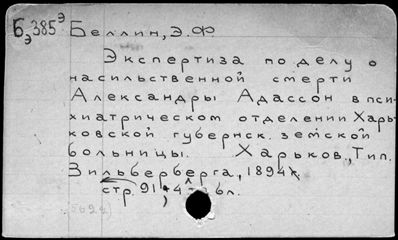 Бэ385э Беллин, Э.Ф.
Экспертиза по делу о
насильственной смерти
Александры Адассон в пси-
хиатрическом отделении Харь-
ковской губернск. земской
больницы. Харьков, Тип.
Зильберберга, 1894.
стр. 91;